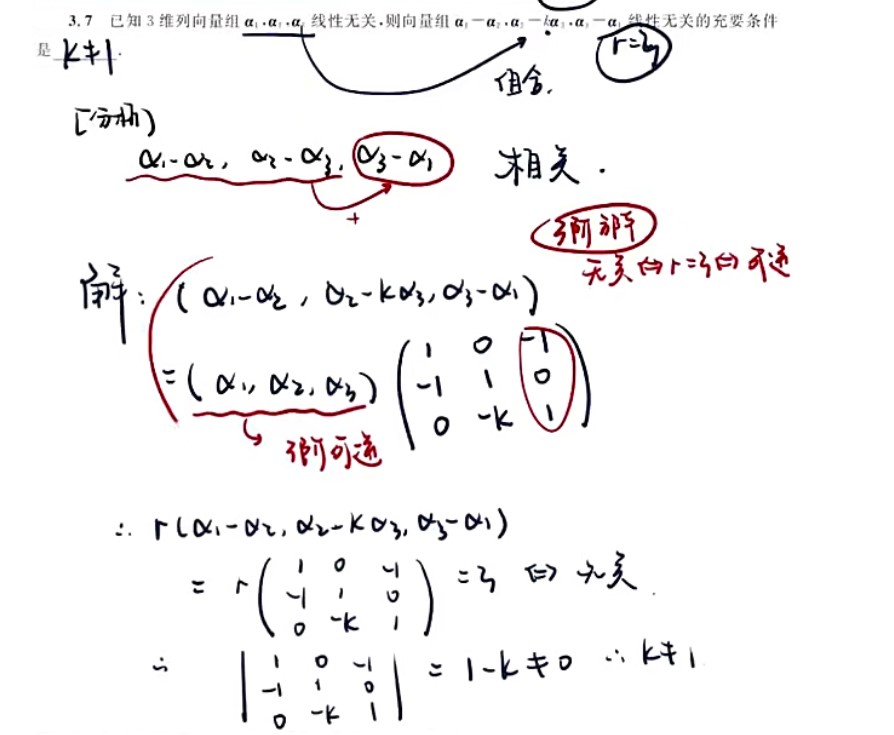 3.7 已知 3 维列向量组 α₁,α₂,α₃ 线性无关,则向量组 α₁-α₂,α₂-kα₃,α₃-α₁ 线性无关的充要条件
是 k≠1.
r=3
组合.
[分析]
α₁-α₂, α₂-α₃, α₃-α₁ 相关.
+
3阶方阵
无关⇔r=3⇔可逆
解: (α₁-α₂, α₂-kα₃, α₃-α₁)
=(α₁, α₂, α₃) ( 1 0 -1
-1 1 0
0 -k 1 )
3阶可逆
∴ r(α₁-α₂, α₂-kα₃, α₃-α₁)
= r ( 1 0 -1
-1 1 0
0 -k 1 ) =3 ⇔ 无关.
∴ | 1 0 -1
-1 1 0
0 -k 1 | = 1-k≠0 ∴ k≠1